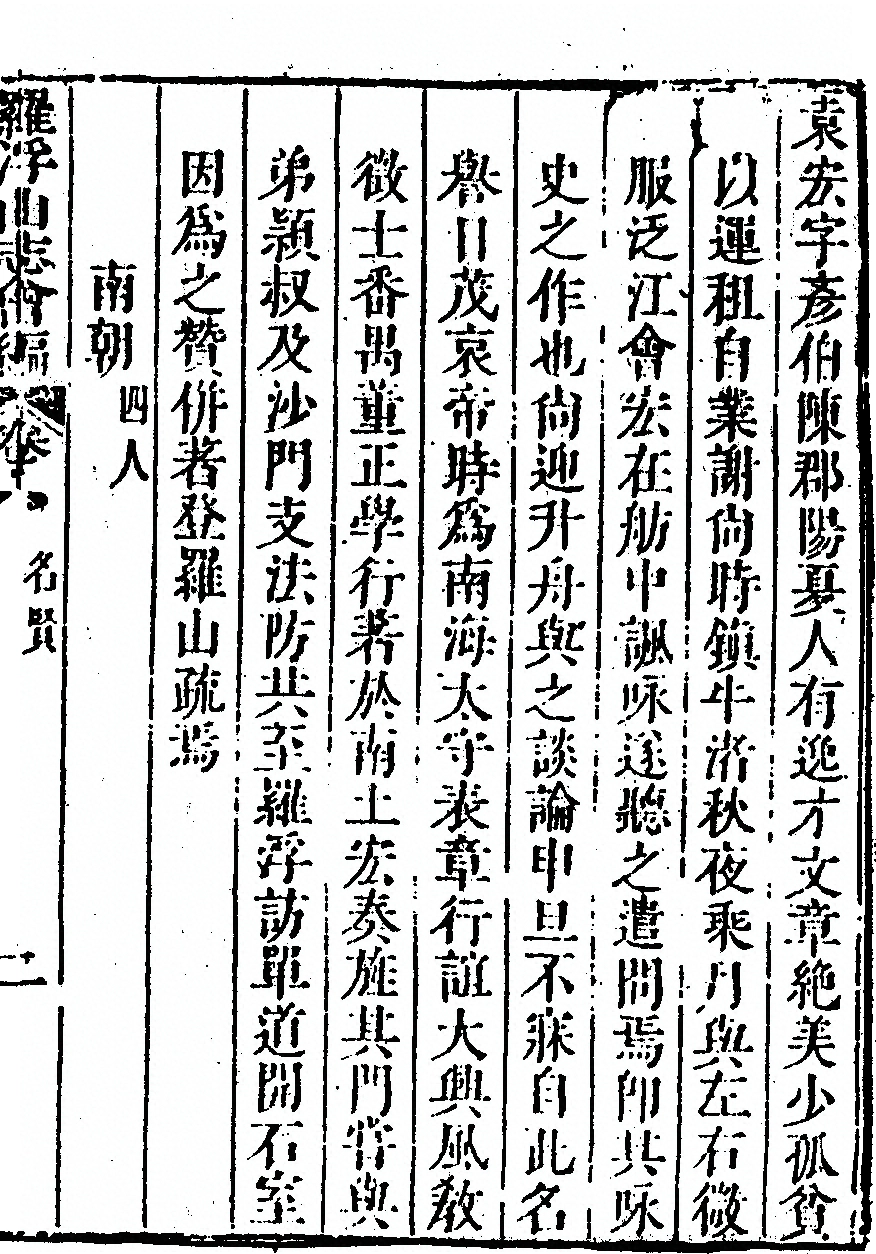 袁宏字彥伯陳郡陽夏人有逸才文章絶美少孤貧
以運租自業謝尙時鎮牛渚秋夜乘月與左右微
服泛江會宏在舫中諷咏遂聽之遣問焉卽其咏
史之作也尙迎升舟與之談論申旦不寐自此名
譽日茂哀帝時爲南海太守表章行誼大興風敎
徵士番禺董正學行著於南土宏奏旌其門嘗與
弟頴叔及沙門支法防共至羅浮訪單道開石室
因爲之贊併著登羅山疏焉
南朝 四人
羅浮山志會編 卷 名賢 十一